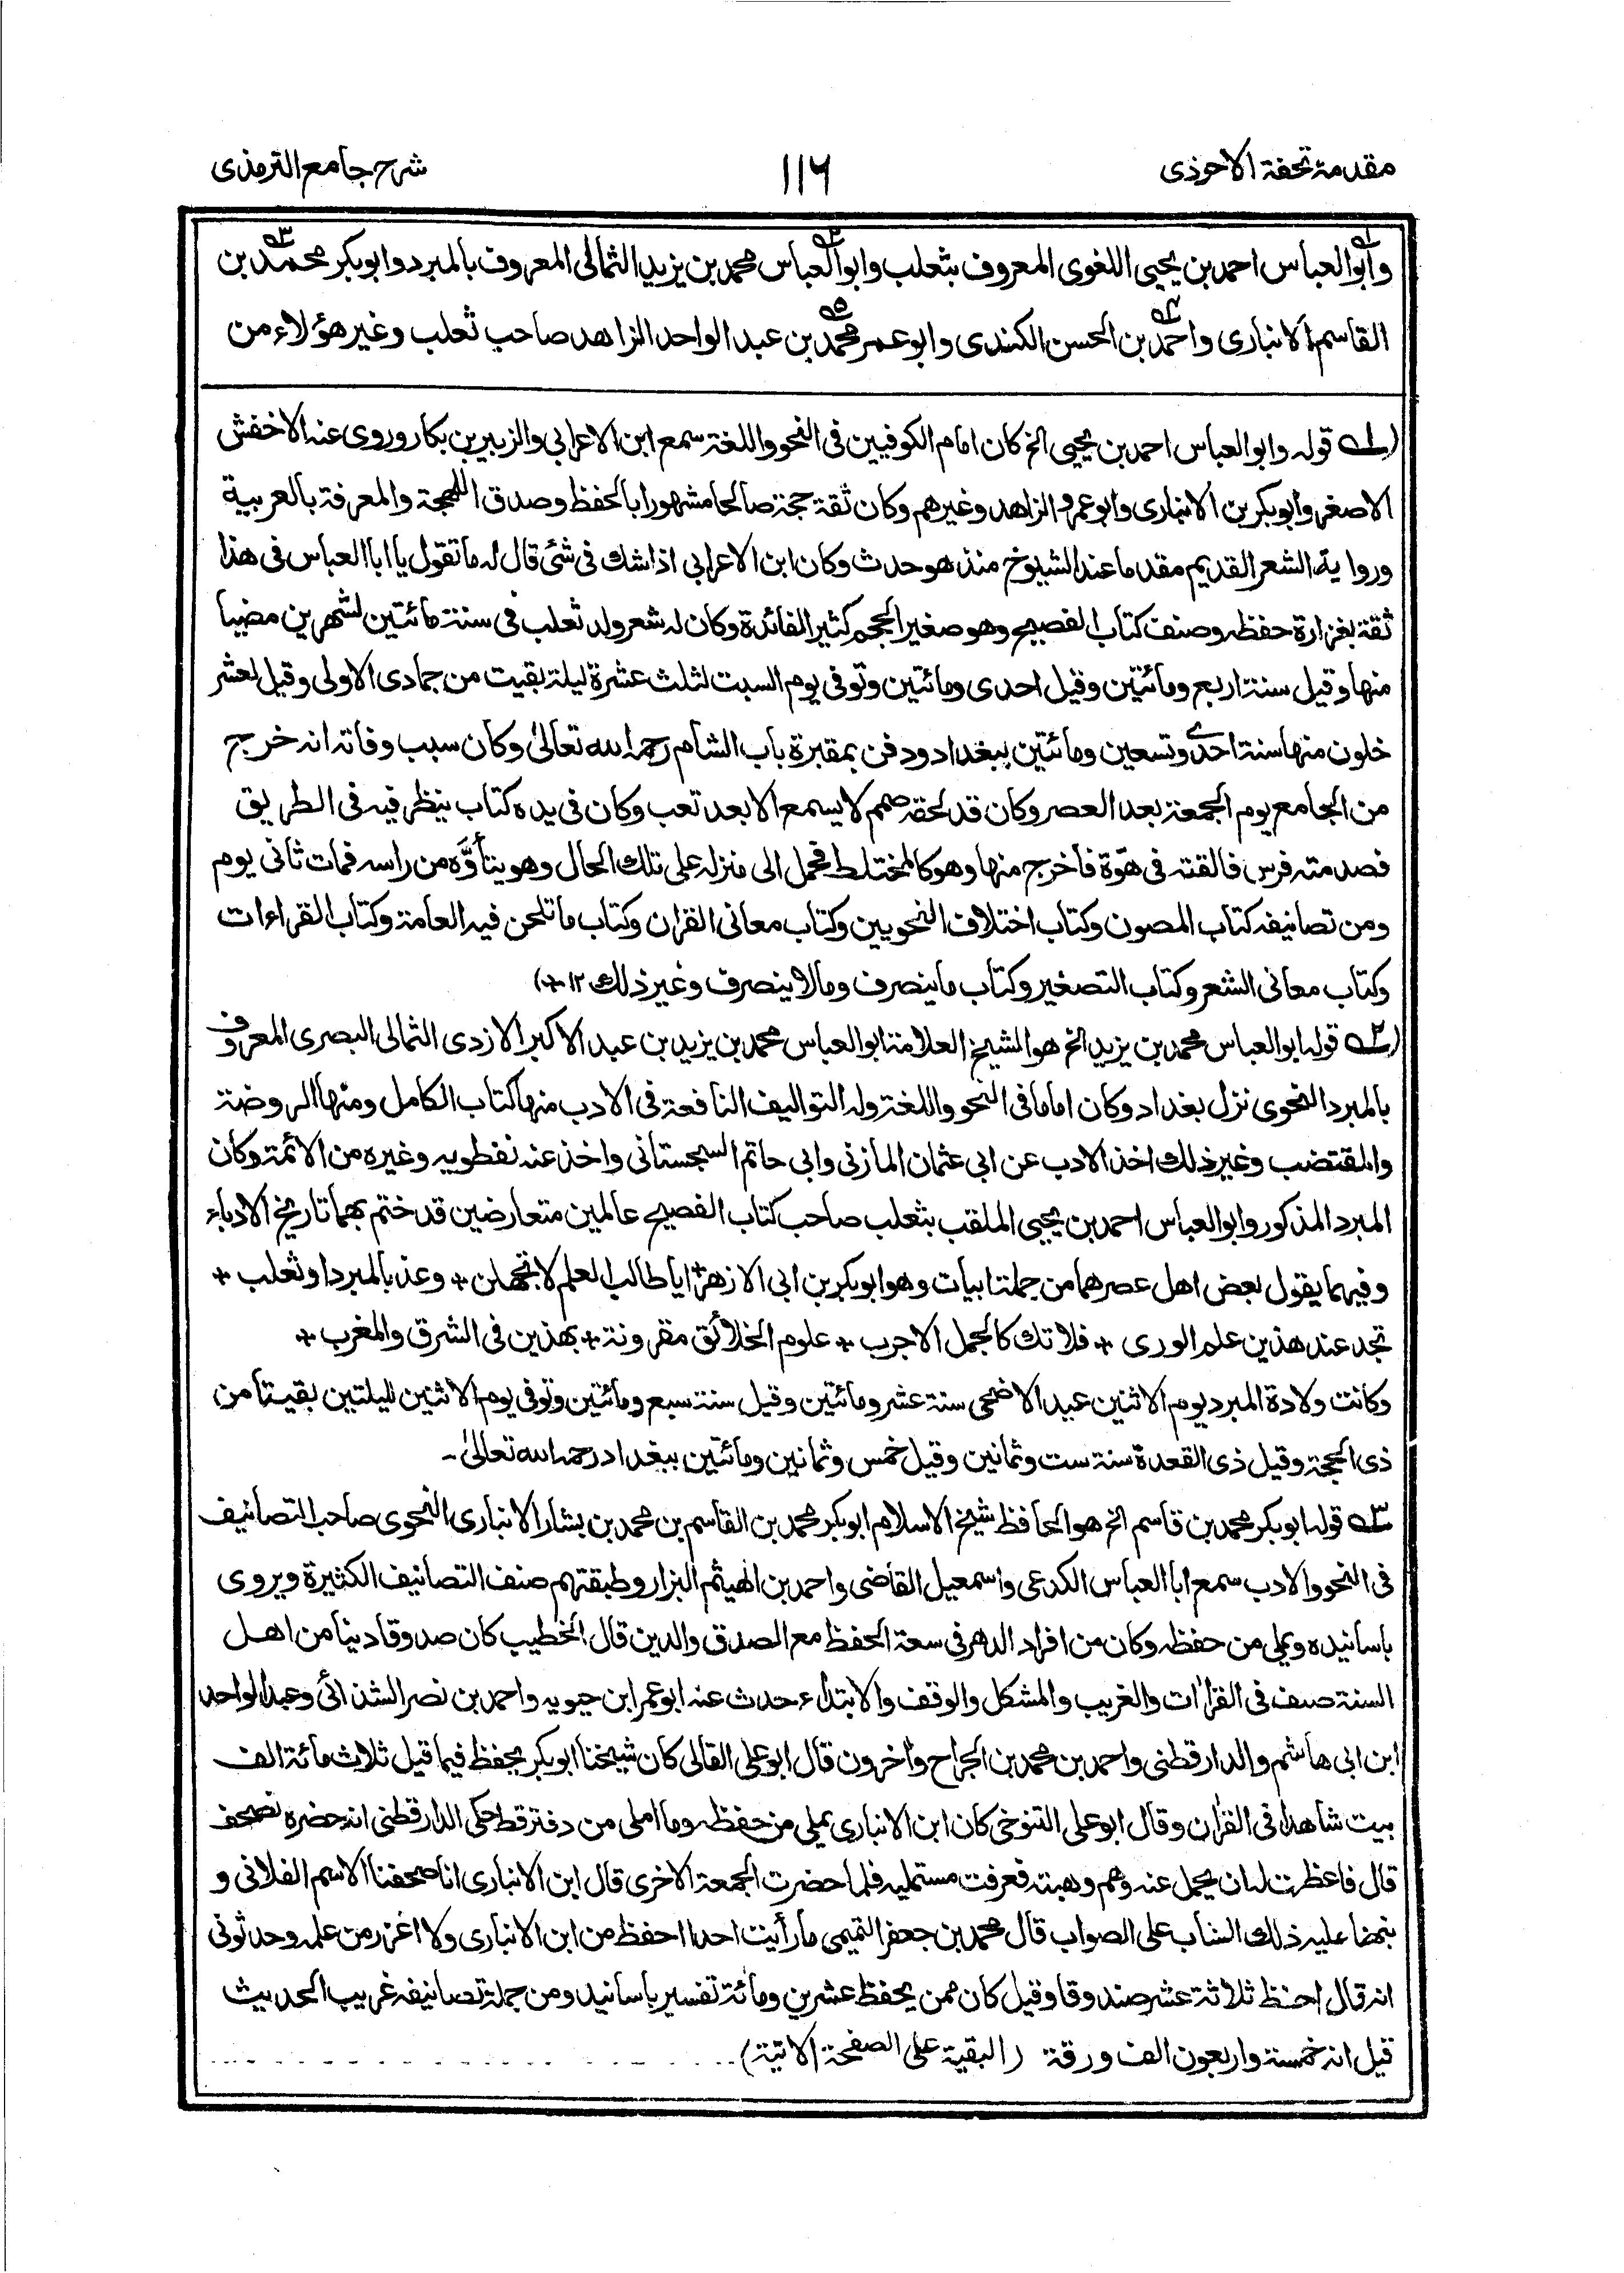 مقدمة تحفة الاحوذى
١١٦
شرح جامع الترمذى
وابو١ العباس احمد بن يحيى اللغوى المعروف بثعلب وابو٢ العباس محمد بن يزيد الثمالى المعروف بالمبرد وابو بكر محمد٣ بن
القاسم الانبارى واحمد٤ بن الحسن الكندى وابو عمر محمد٥ بن عبد الواحد الزاهد صاحب ثعلب وغير هؤلاء من
(١ قوله وابو العباس احمد بن يحيى الخ كان امام الكوفيين فى النحو واللغة سمع ابن الاعرابى والزبير بن بكار وروى عنه الاخفش
الاصغر وابو بكر بن الانبارى وابو عمرو الزاهد وغيرهم وكان ثقة حجة صالحا مشهورا بالحفظ وصدق اللهجة والمعرفة بالعربية
ورواية الشعر القديم مقدما عند الشيوخ منذ هو حدث وكان ابن الاعرابى اذا شك فى شئ قال له ما تقول يا ابا العباس فى هذا
ثقة بغزارة حفظه وصنف كتاب الفصيح وهو صغير الحجم كثير الفائدة وكان له شعر ولد ثعلب فى سنة مائتين لشهرين مضيا
منها وقيل سنة اربع ومائتين وقيل احدى ومائتين وتوفى يوم السبت لثلث عشرة ليلة بقيت من جمادى الاولى وقيل لعشر
خلون منها سنة احدى وتسعين ومائتين ببغداد ودفن بمقبرة باب الشام رحمه الله تعالىٰ وكان سبب وفاته انه خرج
من الجامع يوم الجمعة بعد العصر وكان قد لحقه صمم لا يسمع الا بعد تعب وكان فى يده كتاب ينظر فيه فى الطريق
فصدمته فرس فالقته فى هوّة فاخرج منها وهو كالمختلط فحمل الى منزله على تلك الحال وهو يتأوّه من راسه فمات ثانى يوم
ومن تصانيفه كتاب المصون وكتاب اختلاف النحويين وكتاب معانى القران وكتاب ما تلحن فيه العامة وكتاب القراءات
وكتاب معانى الشعر وكتاب التصغير وكتاب ما ينصرف وما لا ينصرف وغير ذلك ١٢ +)
(٢ قوله ابو العباس محمد بن يزيد الخ هو الشيخ العلامة ابو العباس محمد بن يزيد بن عبد الاكبر الازدى الثمالى البصرى المعروف
بالمبرد النحوى نزل بغداد وكان اماما فى النحو واللغة وله التواليف النافعة فى الادب منها كتاب الكامل ومنها الروضة
والمقتضب وغير ذلك اخذ الادب عن ابى عثمان المازنى وابى حاتم السجستانى واخذ عنه نفطويه وغيره من الائمة وكان
المبرد المذكور وابو العباس احمد بن يحيى الملقب بثعلب صاحب كتاب الفصيح عالمين متعارضين قد ختم بهما تاريخ الادباء
وفيهما يقول بعض اهل عصرهما من جملة ابيات وهو ابو بكر بن ابى الازهر + ايا طالب العلم لا تجهلن + وعذ بالمبرد او ثعلب +
تجد عند هذين علم الورى + فلا تك كالجمل الاجرب + علوم الخلائق مقرونة + بهذين فى الشرق والمغرب +
وكانت ولادة المبرد يوم الاثنين عيد الاضحى سنة عشر ومائتين وقيل سنة سبع ومائتين وتوفى يوم الاثنين لليلتين بقيتا من
ذى الحجة وقيل ذى القعدة سنة ست وثمانين وقيل خمس وثمانين ومائتين ببغداد رحمه الله تعالىٰ ـ
٣ قوله ابو بكر محمد بن قاسم الخ هو الحافظ شيخ الاسلام ابو بكر محمد بن القاسم بن محمد بن بشار الانبارى النحوى صاحب التصانيف
فى النحو والادب سمع ابا العباس الكدعى واسمعيل القاضى واحمد بن الهيثم البزار وطبقتهم صنف التصانيف الكثيرة ويروى
باسانيده ويملى من حفظه وكان من افراد الدهر فى سعة الحفظ مع الصدق والدين قال الخطيب كان صدوقا دينا من اهل
السنة صنف فى القراٰات والغريب والمشكل والوقف والابتداء حدث عنه ابو عمر ابن حيويه واحمد بن نصر الشذائى وعبد الواحد
ابن ابى هاشم والدارقطنى واحمد بن محمد بن الجراح واٰخرون قال ابو على القالى كان شيخنا ابو بكر يحفظ فيما قيل ثلاث مائة الف
بيت شاهدا فى القراٰن وقال ابو على التنوخى كان ابن الانبارى يملى من حفظه وما املى من دفتر قط حكى الدارقطنى انه حضره تصحف
قال فاعظمت له ان يحمل عنه وهم وهبته فعرفت مستمليه فلما حضرت الجمعة الاخرى قال ابن الانبارى انا صحفنا الاسم الفلانى و
نبهنا عليه ذلك الشاب على الصواب قال محمد بن جعفر التميمى ما رأيت احدا احفظ من ابن الانبارى ولا اغزر من علمه وحدثونى
انه قال احفظ ثلاثة عشر صندوقا وقيل كان ممن يحفظ عشرين ومائة تفسير باسانيد ومن جملة تصانيفه غريب الحديث
قيل انه خمسة واربعون الف ورقة (البقية على الصفحة الاتية)